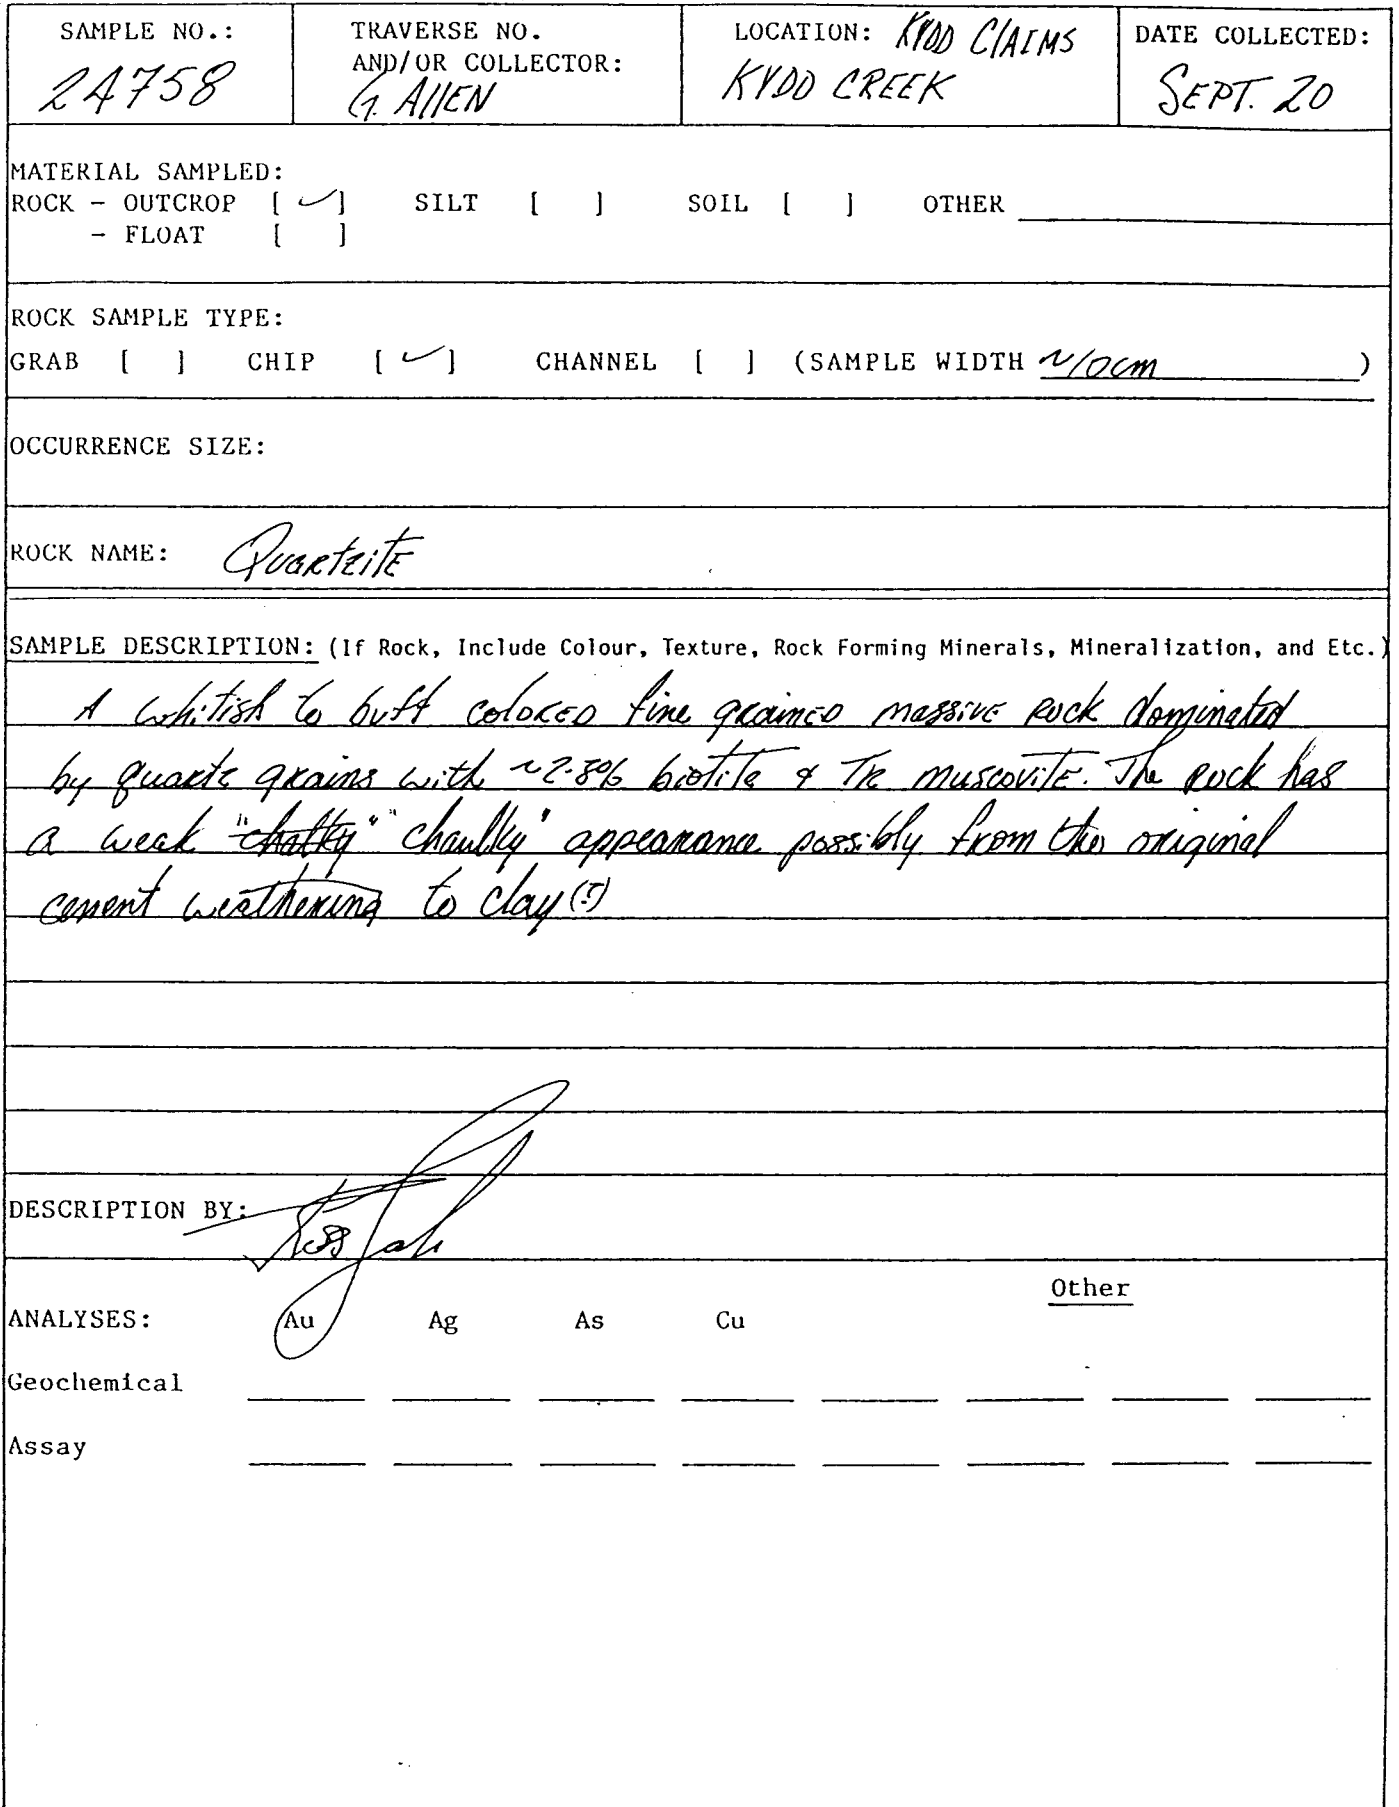 SAMPLE NO.: TRAVERSE NO. LOCATION: KYDD ClAIMS DATE COLLECTED:
AND/OR COLLECTOR:
24758 G. AllEN KYDD CREEK SEPT. 20
MATERIAL SAMPLED:
ROCK - OUTCROP [ ✓ ] SILT [ ] SOIL [ ] OTHER
- FLOAT [ ]
ROCK SAMPLE TYPE:
GRAB [ ] CHIP [ ✓ ] CHANNEL [ ] (SAMPLE WIDTH ~10cm )
OCCURRENCE SIZE:
ROCK NAME: QuartzitE
SAMPLE DESCRIPTION: (If Rock, Include Colour, Texture, Rock Forming Minerals, Mineralization, and Etc.)
A whitish to buff colored fine grained massive rock dominated
by quartz grains with biotite & TR muscovite. The rock has
a weak "chalky" "chaulky" appearance possibly from the original
cement weathering to clay (?)
DESCRIPTION BY:
Other
ANALYSES: Au Ag As Cu
Geochemical
Assay